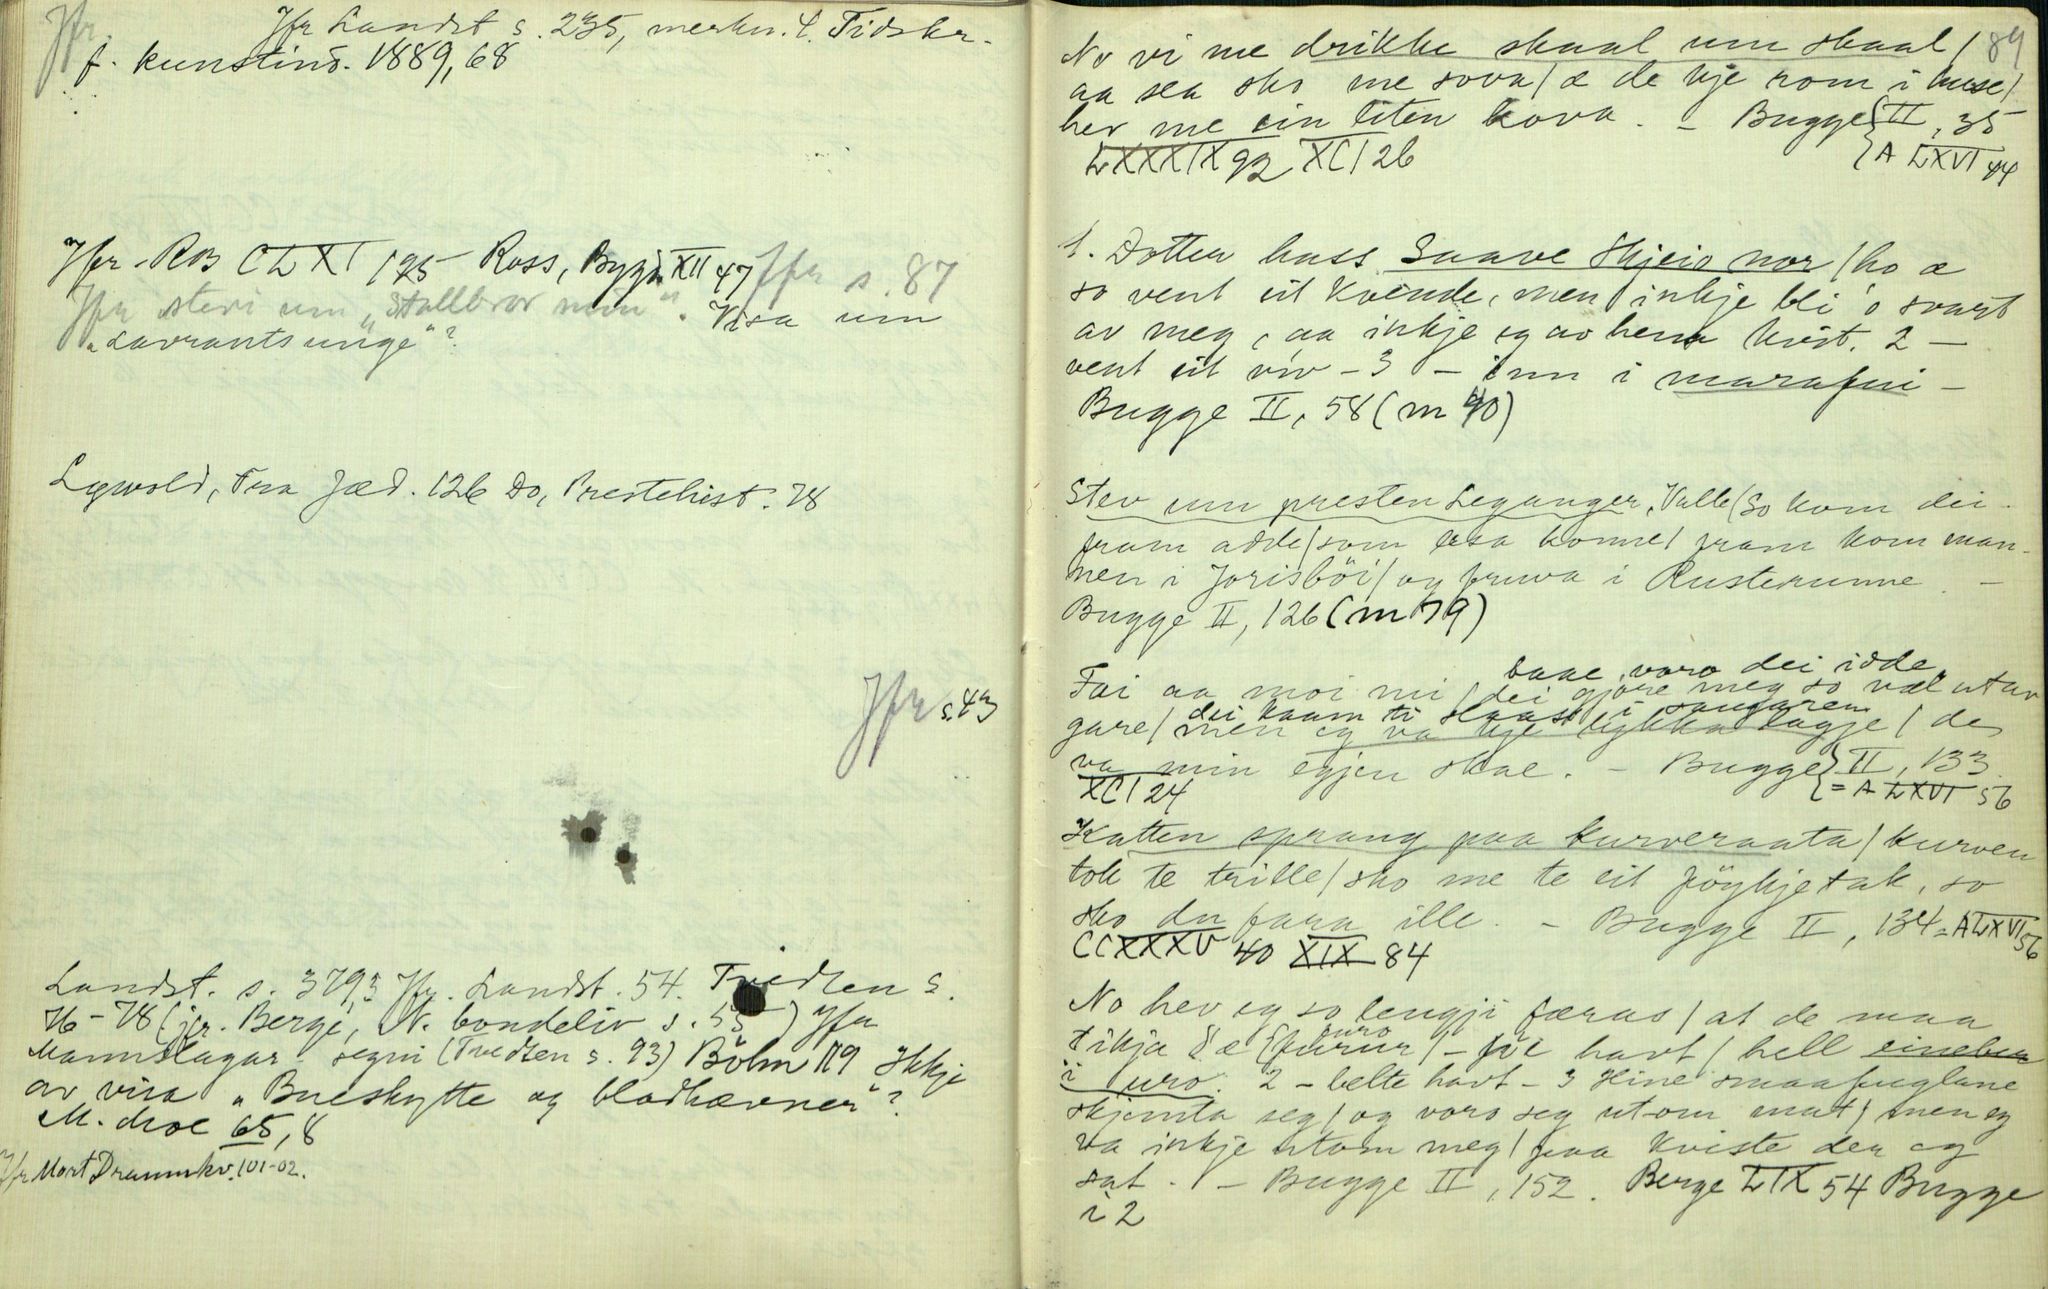 Jfr.
Jfr Landst s. 235, merkn. 4. Tidskr.
f. kunstind. 1889, 68
Jfr. RB CLXI 195 Ross, Bygd. XII 47 Jfr s. 87
Jfr stevi um „Stallbror min". Visa um
„Lavrants unge"?
Lywold, Fra Jæd. 126 Do, Prestehist. 78
Jfr s. 43
Landst. s. 379,3 Jfr. Landst. 54. Tvedten s.
76-78 (jfr. Berge, N. bondeliv s. 55) Jfr
Mannslagar-segni (Tvedten s. 93) Bölm 119 Ikkje
av visa „Bueskytte og blodhævner"?
M. Moe 65, 8
Jfr Mort Draumkv. 101-02.
89
No vi me drikke skaal um skaal /
aa sea sko me sova / æ de kje rom i huse /
hev me ein liten kova. - Bugge II, 35
LXXXIX 92 XCI 26 A LXVI 44
1. Dotter hass Saave Skjeid nor / ho æ
so vent eit kvende, men inkje bli 'o svart
av meg, aa inkje eg av henn kvit. 2 -
vent eit viv - 3 - inn i marafui -
Bugge II, 58 (m 40)
Stev um presten Leganger, Valle / So kom dei
fram adde / som lesa konne / fram kom man-
nen i Jorisböi / og fruva i Rusterunne -
Bugge II, 126 (m 79)
baae voro dei idde
Fai aa moi mi / dei gjore meg so væl utav
dei kaam ti slaast i sengaren
gare / men eg va kje lykka lagje / de
va min egjen skae. - Bugge II, 133
XCI 24 = A LXVI 56
Katten sprang paa kurveraata / kurven
tok te trille / sko me te eit föykjetak, so
sko du fara ille. - Bugge II, 134 = A LXVI 56
CCXXXV 40 XIX 84
No hev eg so lengji færas / at de maa
furo
tikja de furur / - föe havt / hell einebu
i uro. 2 - belte havt - 3 Hine smaafuglane
skjemta seg / og voro seg utom mat / men eg
va inkje utom meg / paa kviste der eg
sat. - Bugge II, 152. Berge LIX 54 Bugge
i 2